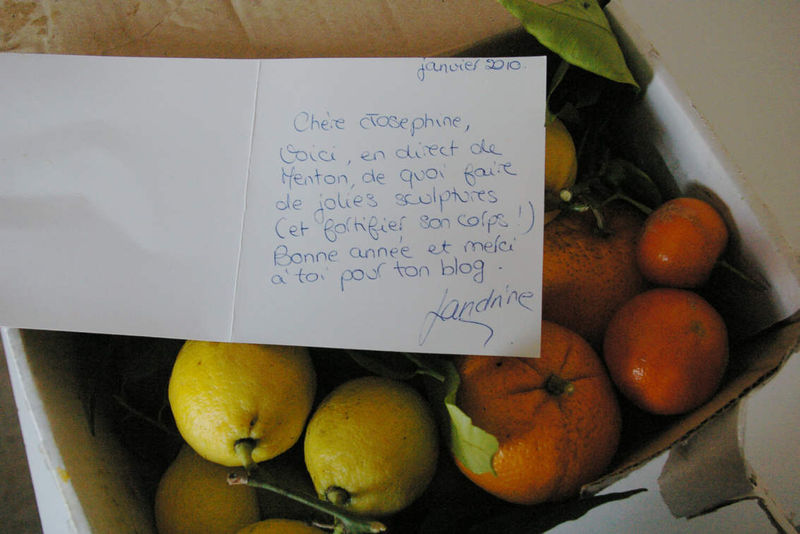 janvier 2010.
Chère Josephine,
Voici, en direct de
Menton, de quoi faire
de jolies sculptures
(et fortifier son corps !)
Bonne année et merci
à toi pour ton blog.
Sandrine